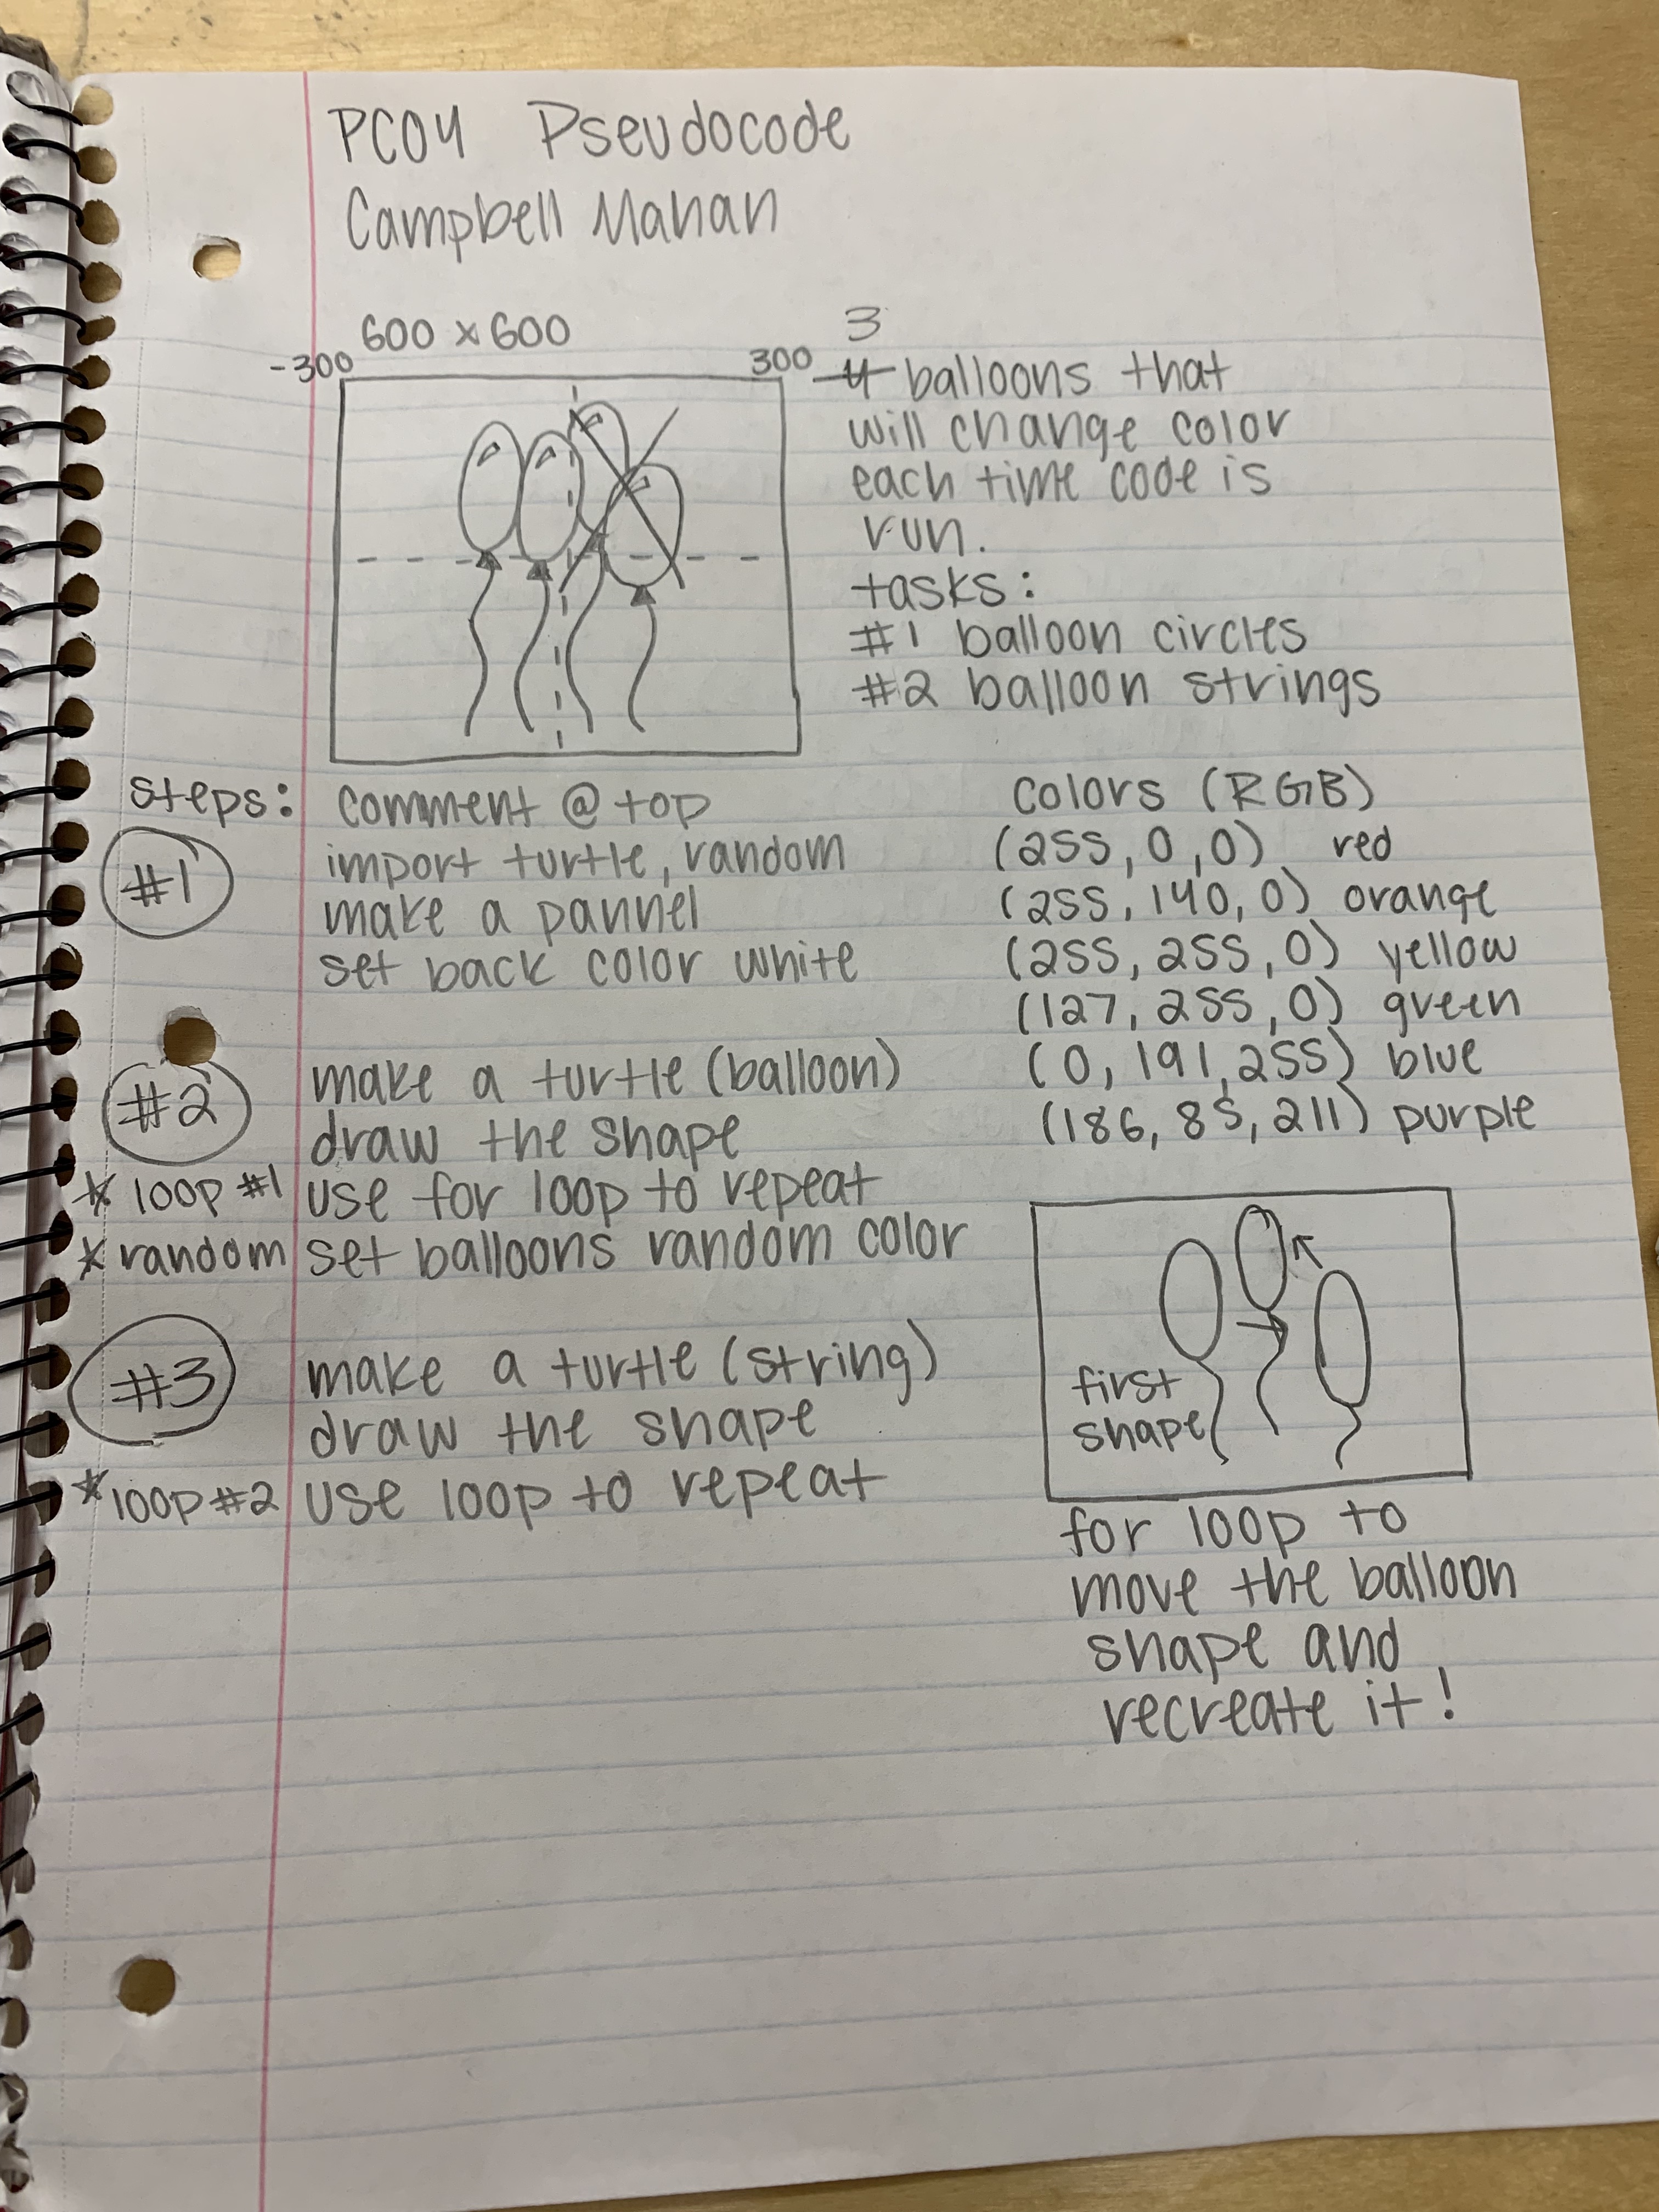 PC04 Pseudocode
Campbell Mahan
600 x 600
-300 300
3
4 balloons that
will change color
each time code is
run.
tasks:
#1 balloon circles
#2 balloon strings
steps: comment @ top
#1 import turtle, random
make a pannel
set back color white
#2 make a turtle (balloon)
draw the shape
* loop #1 use for loop to repeat
* random set balloons random color
#3 make a turtle (string)
draw the shape
* loop #2 use loop to repeat
colors (RGB)
(255, 0, 0) red
(255, 140, 0) orange
(255, 255, 0) yellow
(127, 255, 0) green
(0, 191, 255) blue
(186, 85, 211) purple
first
shape
for loop to
move the balloon
shape and
recreate it!